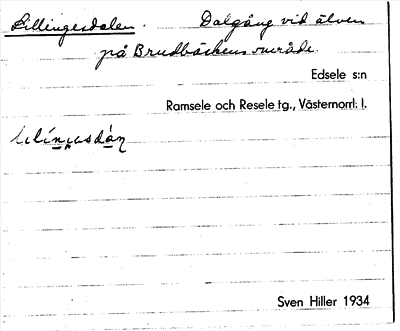 Lillingesdalen. Dalgång vid älven
på Brudbäckens område.
Edsele s:n
Ramsele och Resele tg., Västernorrl. l.
Sven Hiller 1934